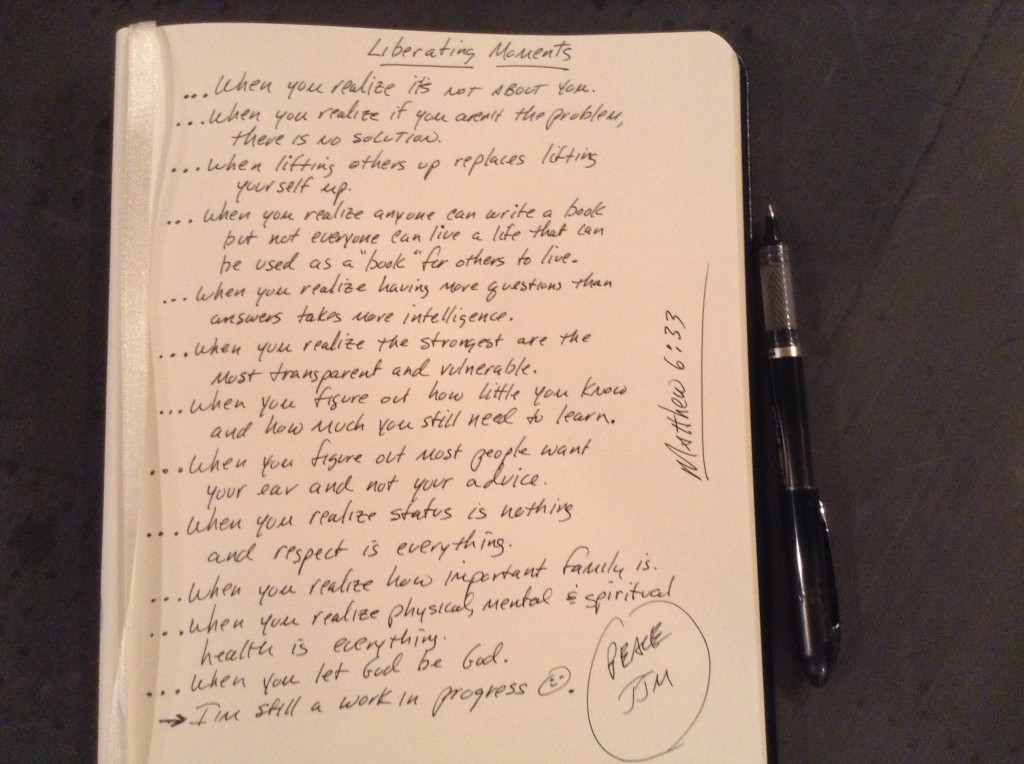 Liberating Moments
... When you realize it's NOT ABOUT YOU.
... When you realize if you aren't the problem,
there is no solution.
... When lifting others up replaces lifting
yourself up.
... When you realize anyone can write a book
but not everyone can live a life that can
be used as a "book" for others to live.
... When you realize having more questions than
answers takes more intelligence.
... When you realize the strongest are the
most transparent and vulnerable.
... When you figure out how little you know
and how much you still need to learn.
... When you figure out most people want
your ear and not your advice.
... When you realize status is nothing
and respect is everything.
... When you realize how important family is.
... When you realize physical, mental & spiritual
health is everything.
... When you let God be God.
→ I'm still a work in progress ☺.
Matthew 6:33
PEACE
JJM